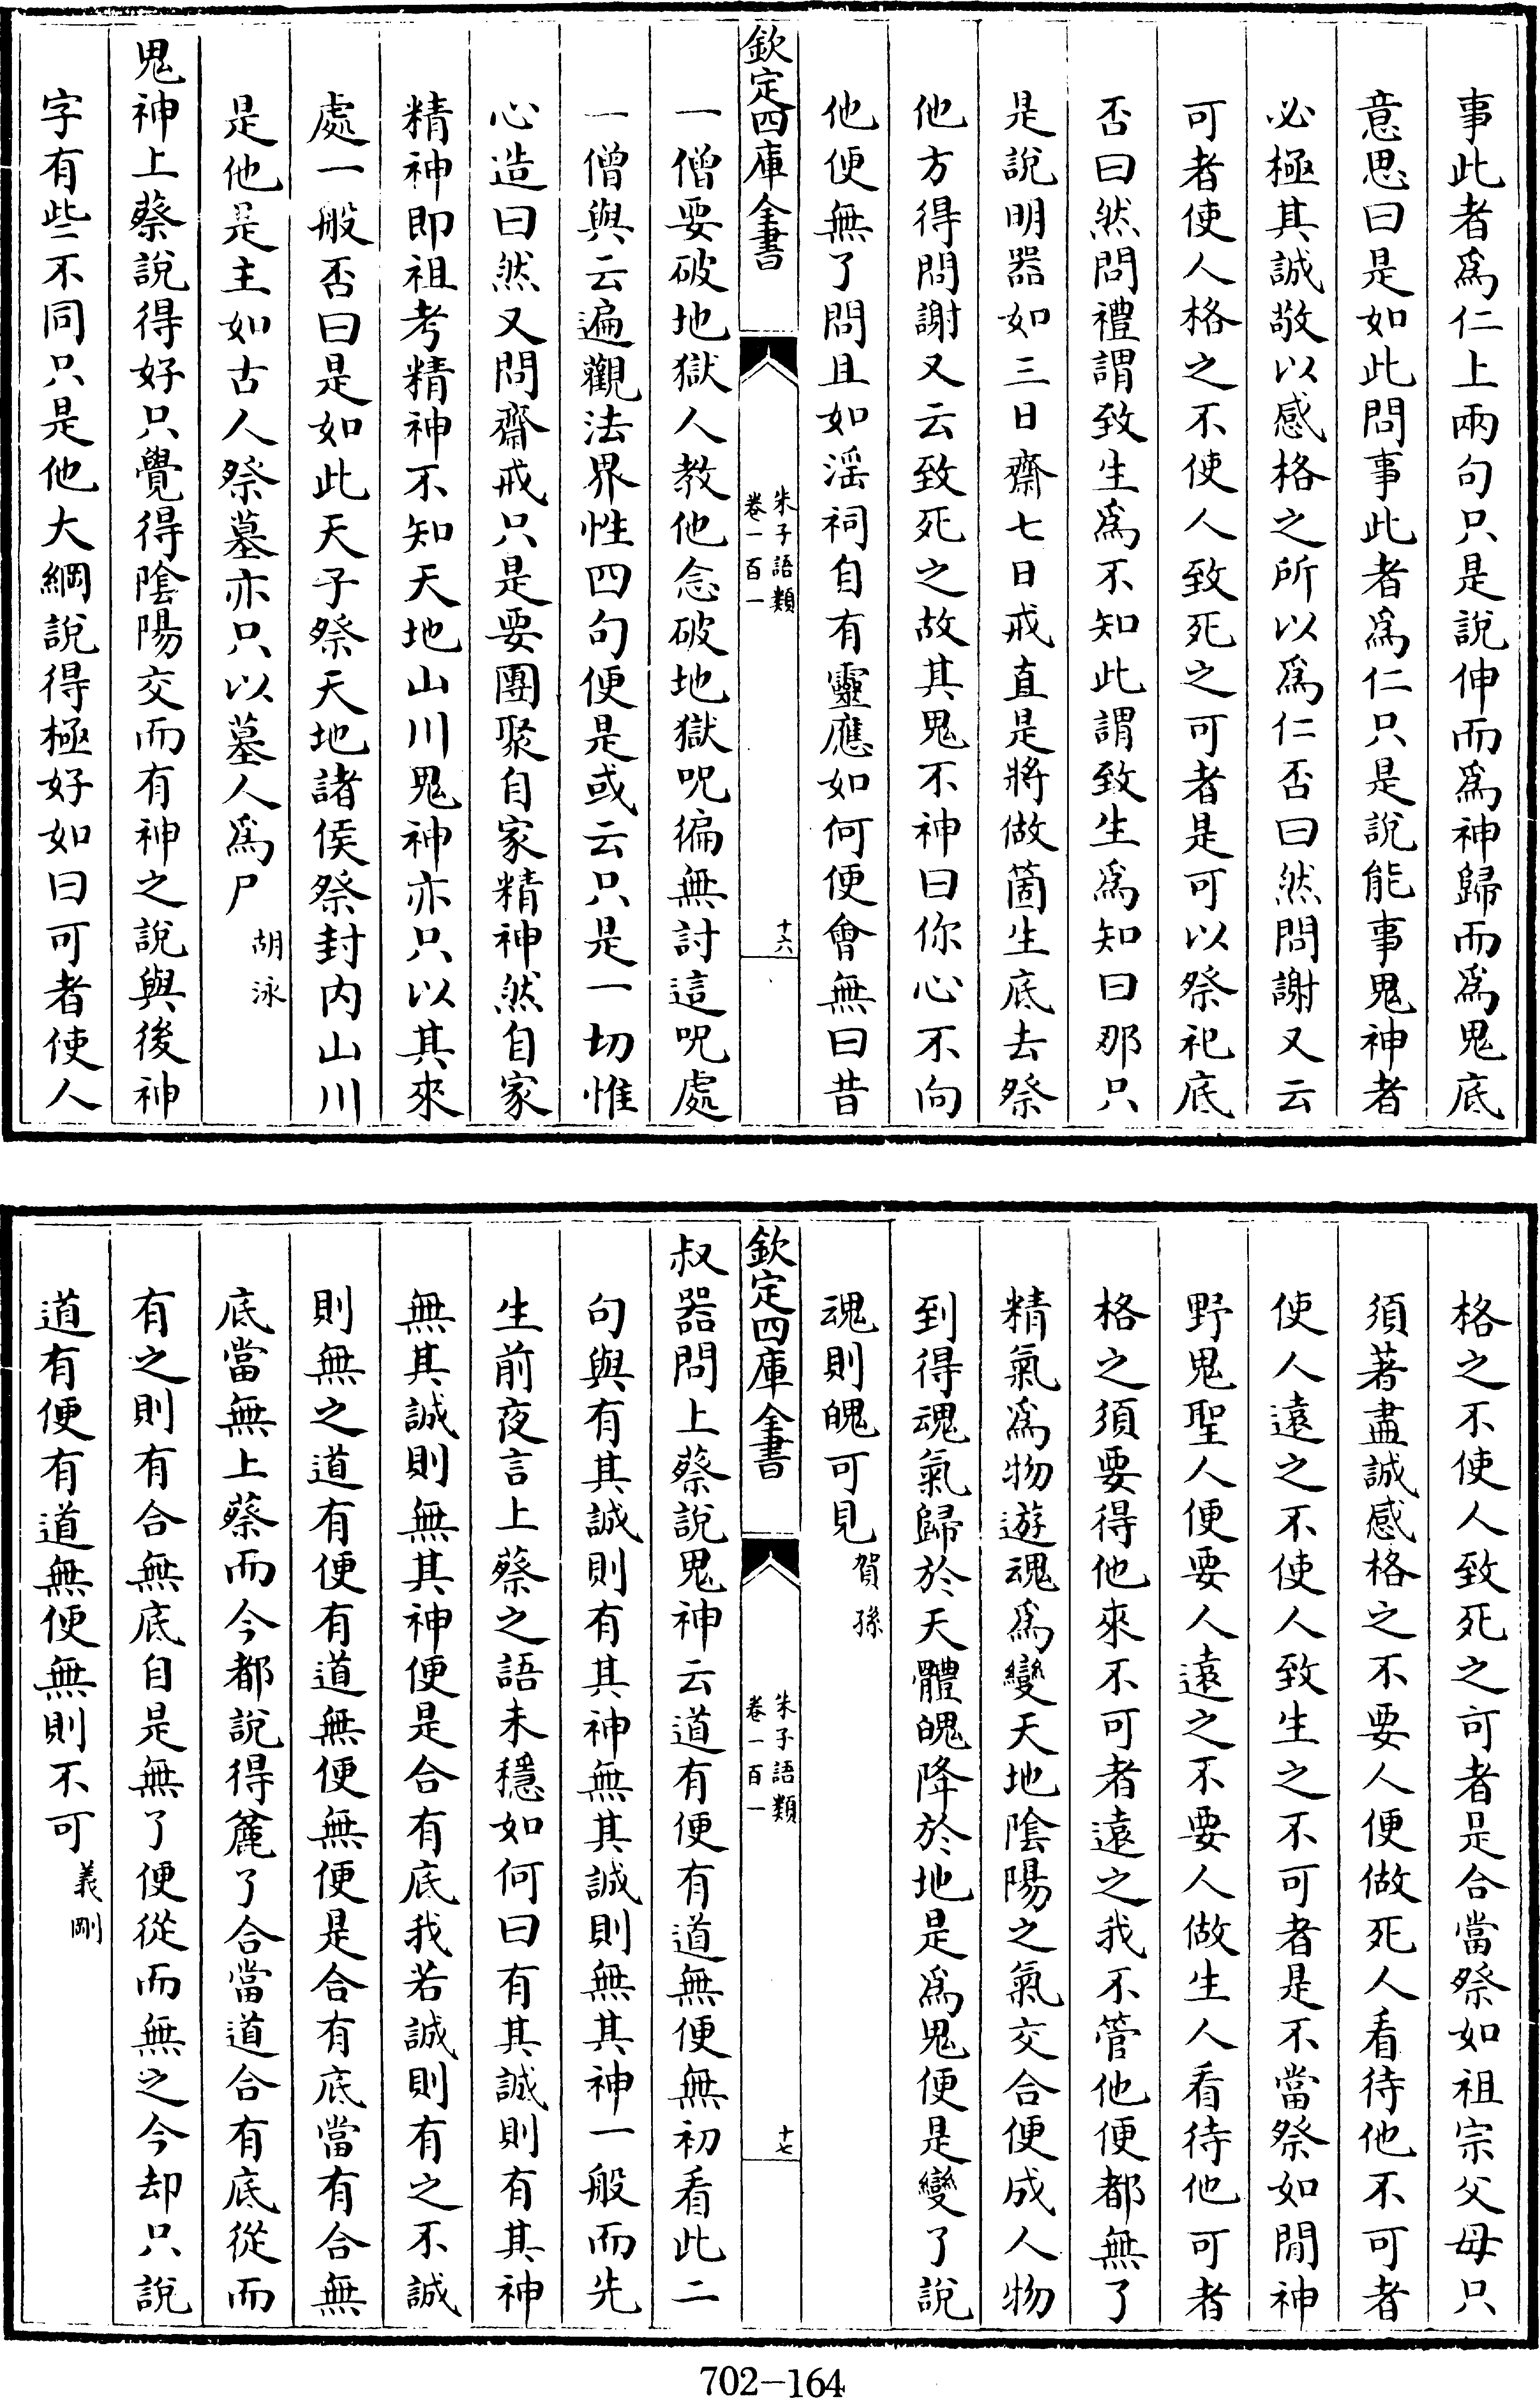 事此者爲仁上兩句只是說伸而爲神歸而爲鬼底
意思曰是如此問事此者爲仁只是說能事鬼神者
必極其誠敬以感格之所以爲仁否曰然問謝又云
可者使人格之不使人致死之可者是可以祭祀底
否曰然問禮謂致生爲不知此謂致生爲知曰那只
是說明器如三日齋七日戒直是將做箇生底去祭
他方得問謝又云致死之故其鬼不神曰你心不向
他便無了問且如滛祠自有靈應如何便會無曰昔
欽定四庫全書
朱子語類
卷一百一
十六
一僧要破地獄人教他念破地獄呪徧無討這呪處
一僧與云遍觀法界性四句便是或云只是一切惟
心造曰然又問齋戒只是要團聚自家精神然自家
精神即祖考精神不知天地山川鬼神亦只以其來
處一般否曰是如此天子祭天地諸侯祭封内山川
是他是主如古人祭墓亦只以墓人爲尸胡泳
鬼神上蔡說得好只覺得隂陽交而有神之說與後神
字有些不同只是他大綱說得極好如曰可者使人
格之不使人致死之可者是合當祭如祖宗父母只
須著盡誠感格之不要人便做死人看待他不可者
使人遠之不使人致生之不可者是不當祭如閒神
野鬼聖人便要人遠之不要人做生人看待他可者
格之須要得他來不可者遠之我不管他便都無了
精氣爲物遊魂爲變天地隂陽之氣交合便成人物
到得魂氣歸於天體魄降於地是爲鬼便是變了說
魂則魄可見賀孫
欽定四庫全書
朱子語類
卷一百一
十七
叔器問上蔡說鬼神云道有便有道無便無初看此二
句與有其誠則有其神無其誠則無其神一般而先
生前夜言上蔡之語未穩如何曰有其誠則有其神
無其誠則無其神便是合有底我若誠則有之不誠
則無之道有便有道無便無便是合有底當有合無
底當無上蔡而今都說得麄了合當道合有底從而
有之則有合無底自是無了便從而無之今却只說
道有便有道無便無則不可義剛
702-164